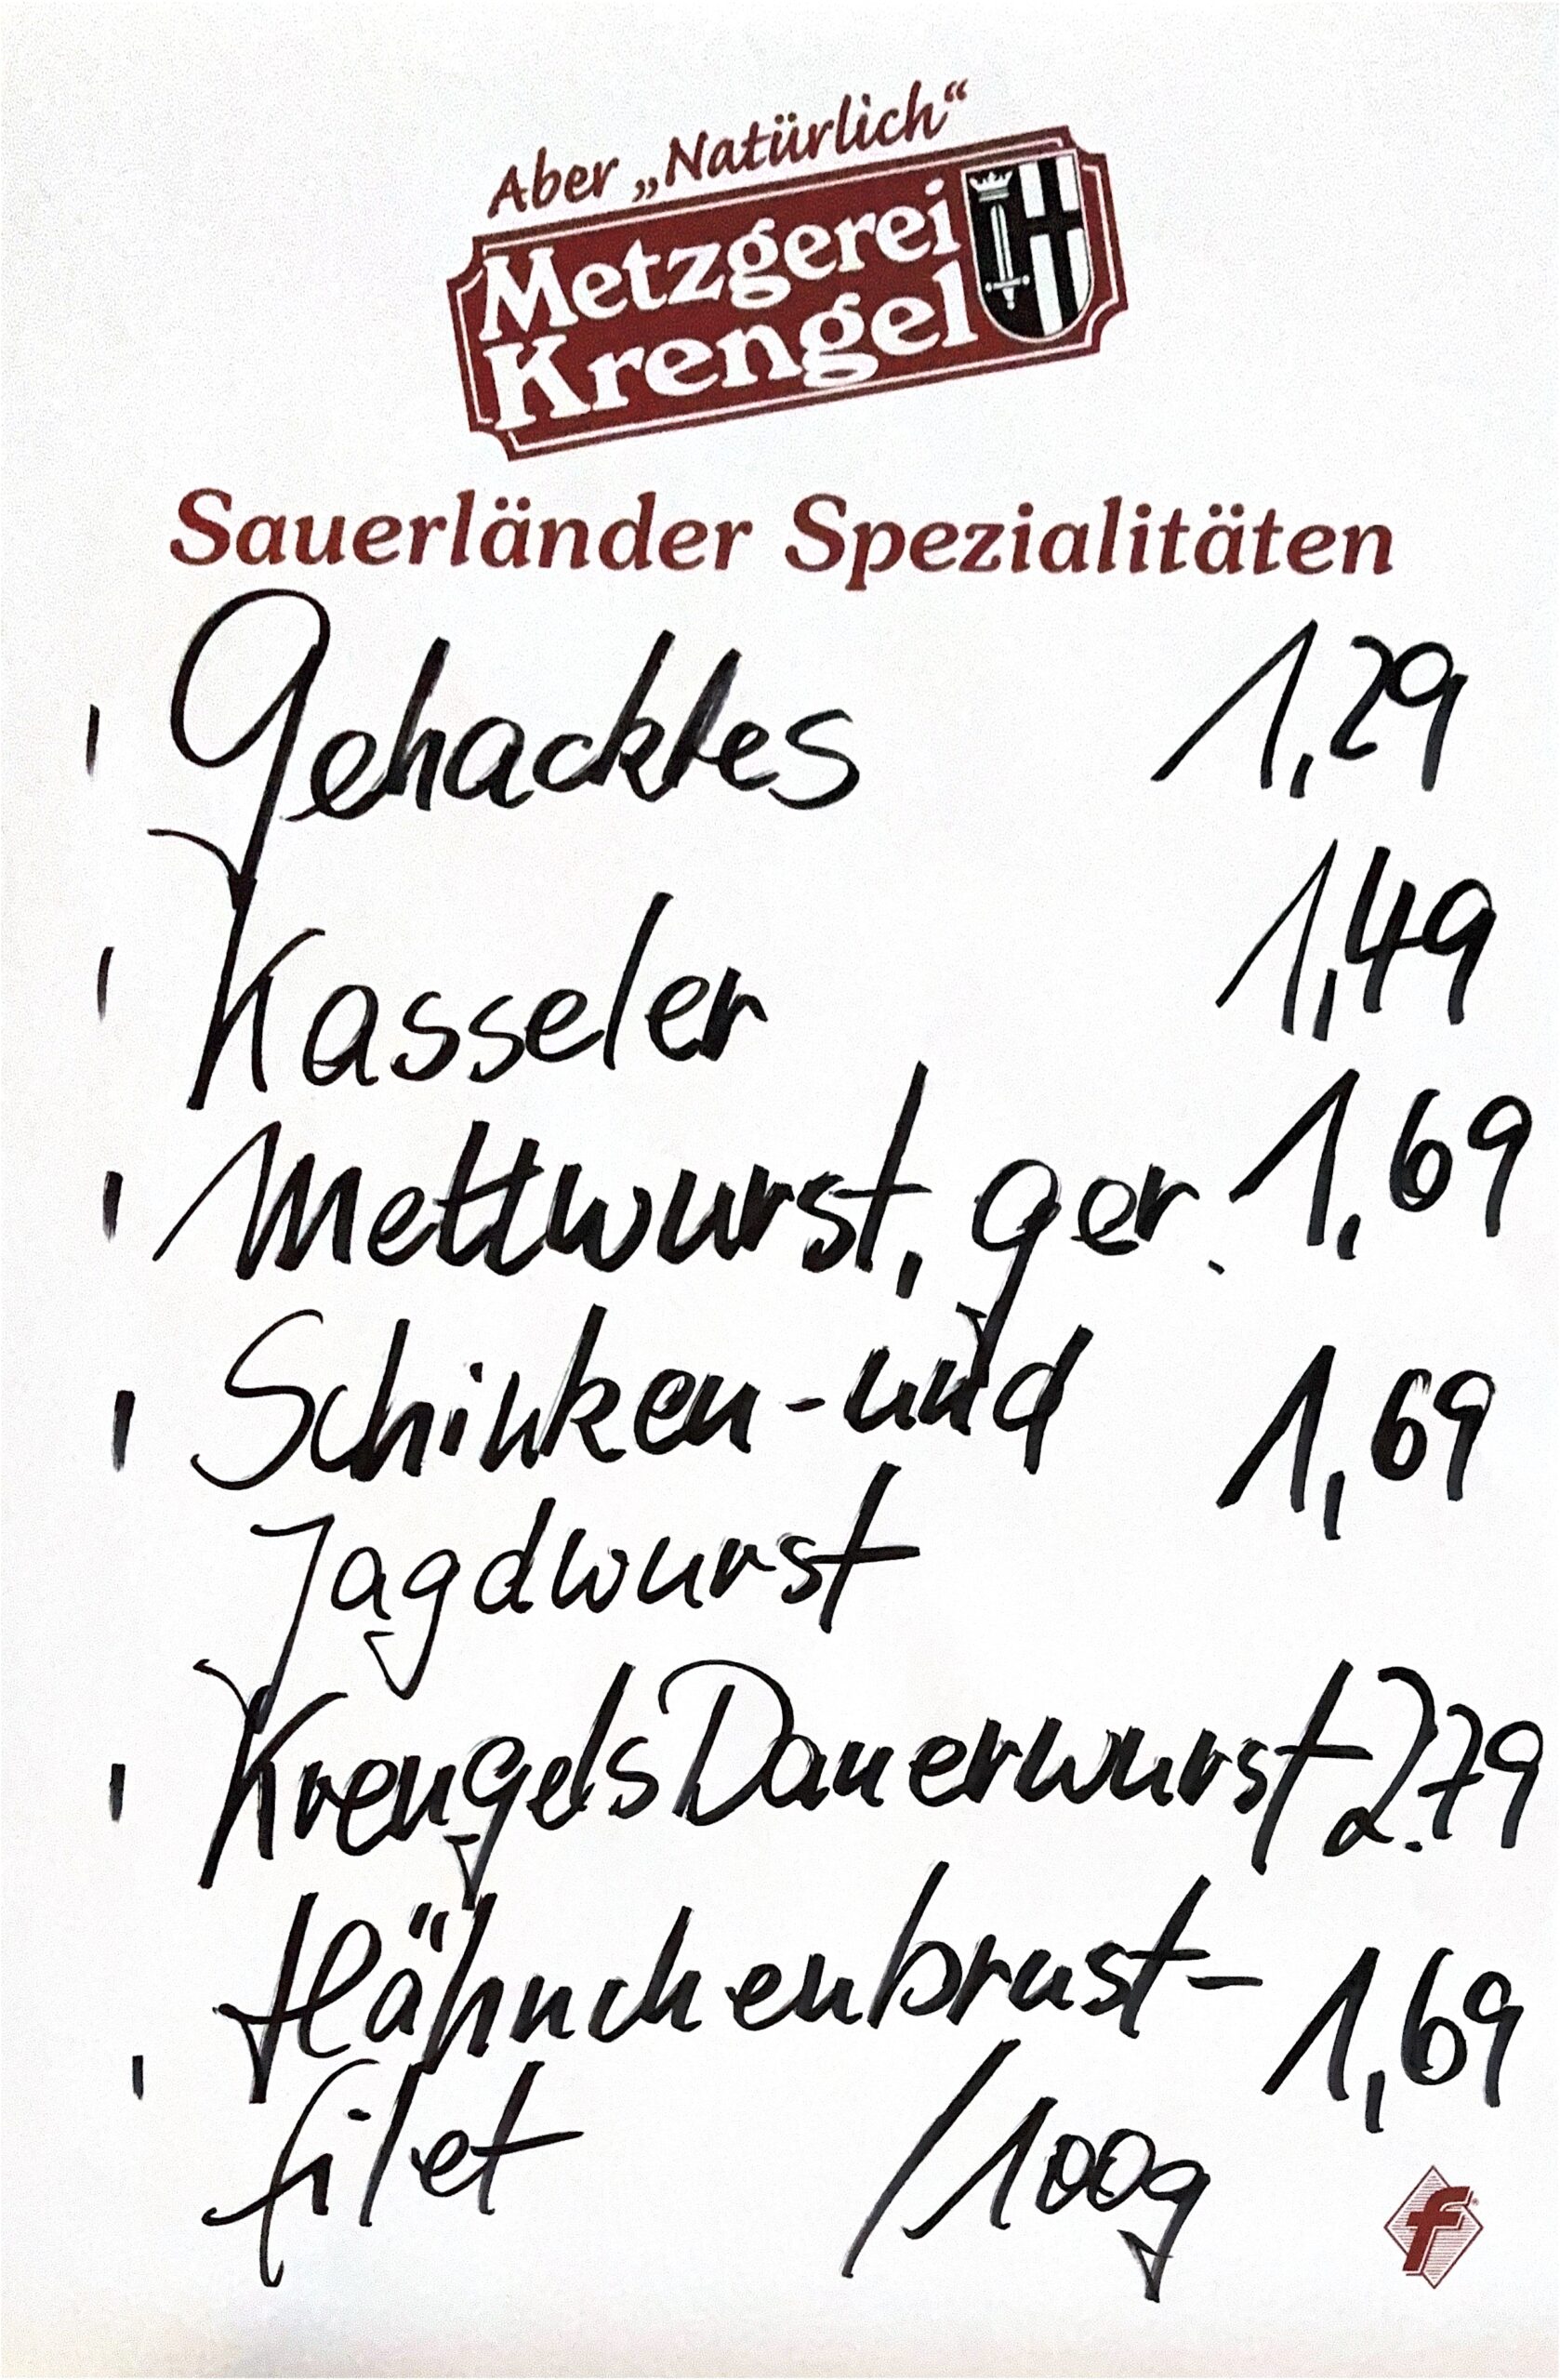 Aber „Natürlich“
Metzgerei
Krengel
Sauerländer Spezialitäten
Gehacktes 1,29
Kasseler 1,49
Mettwurst, ger. 1,69
Schinken-und 1,69
Jagdwurst
Krengels Dauerwurst 2.79
Hähnchenbrust- 1,69
filet /100g
f